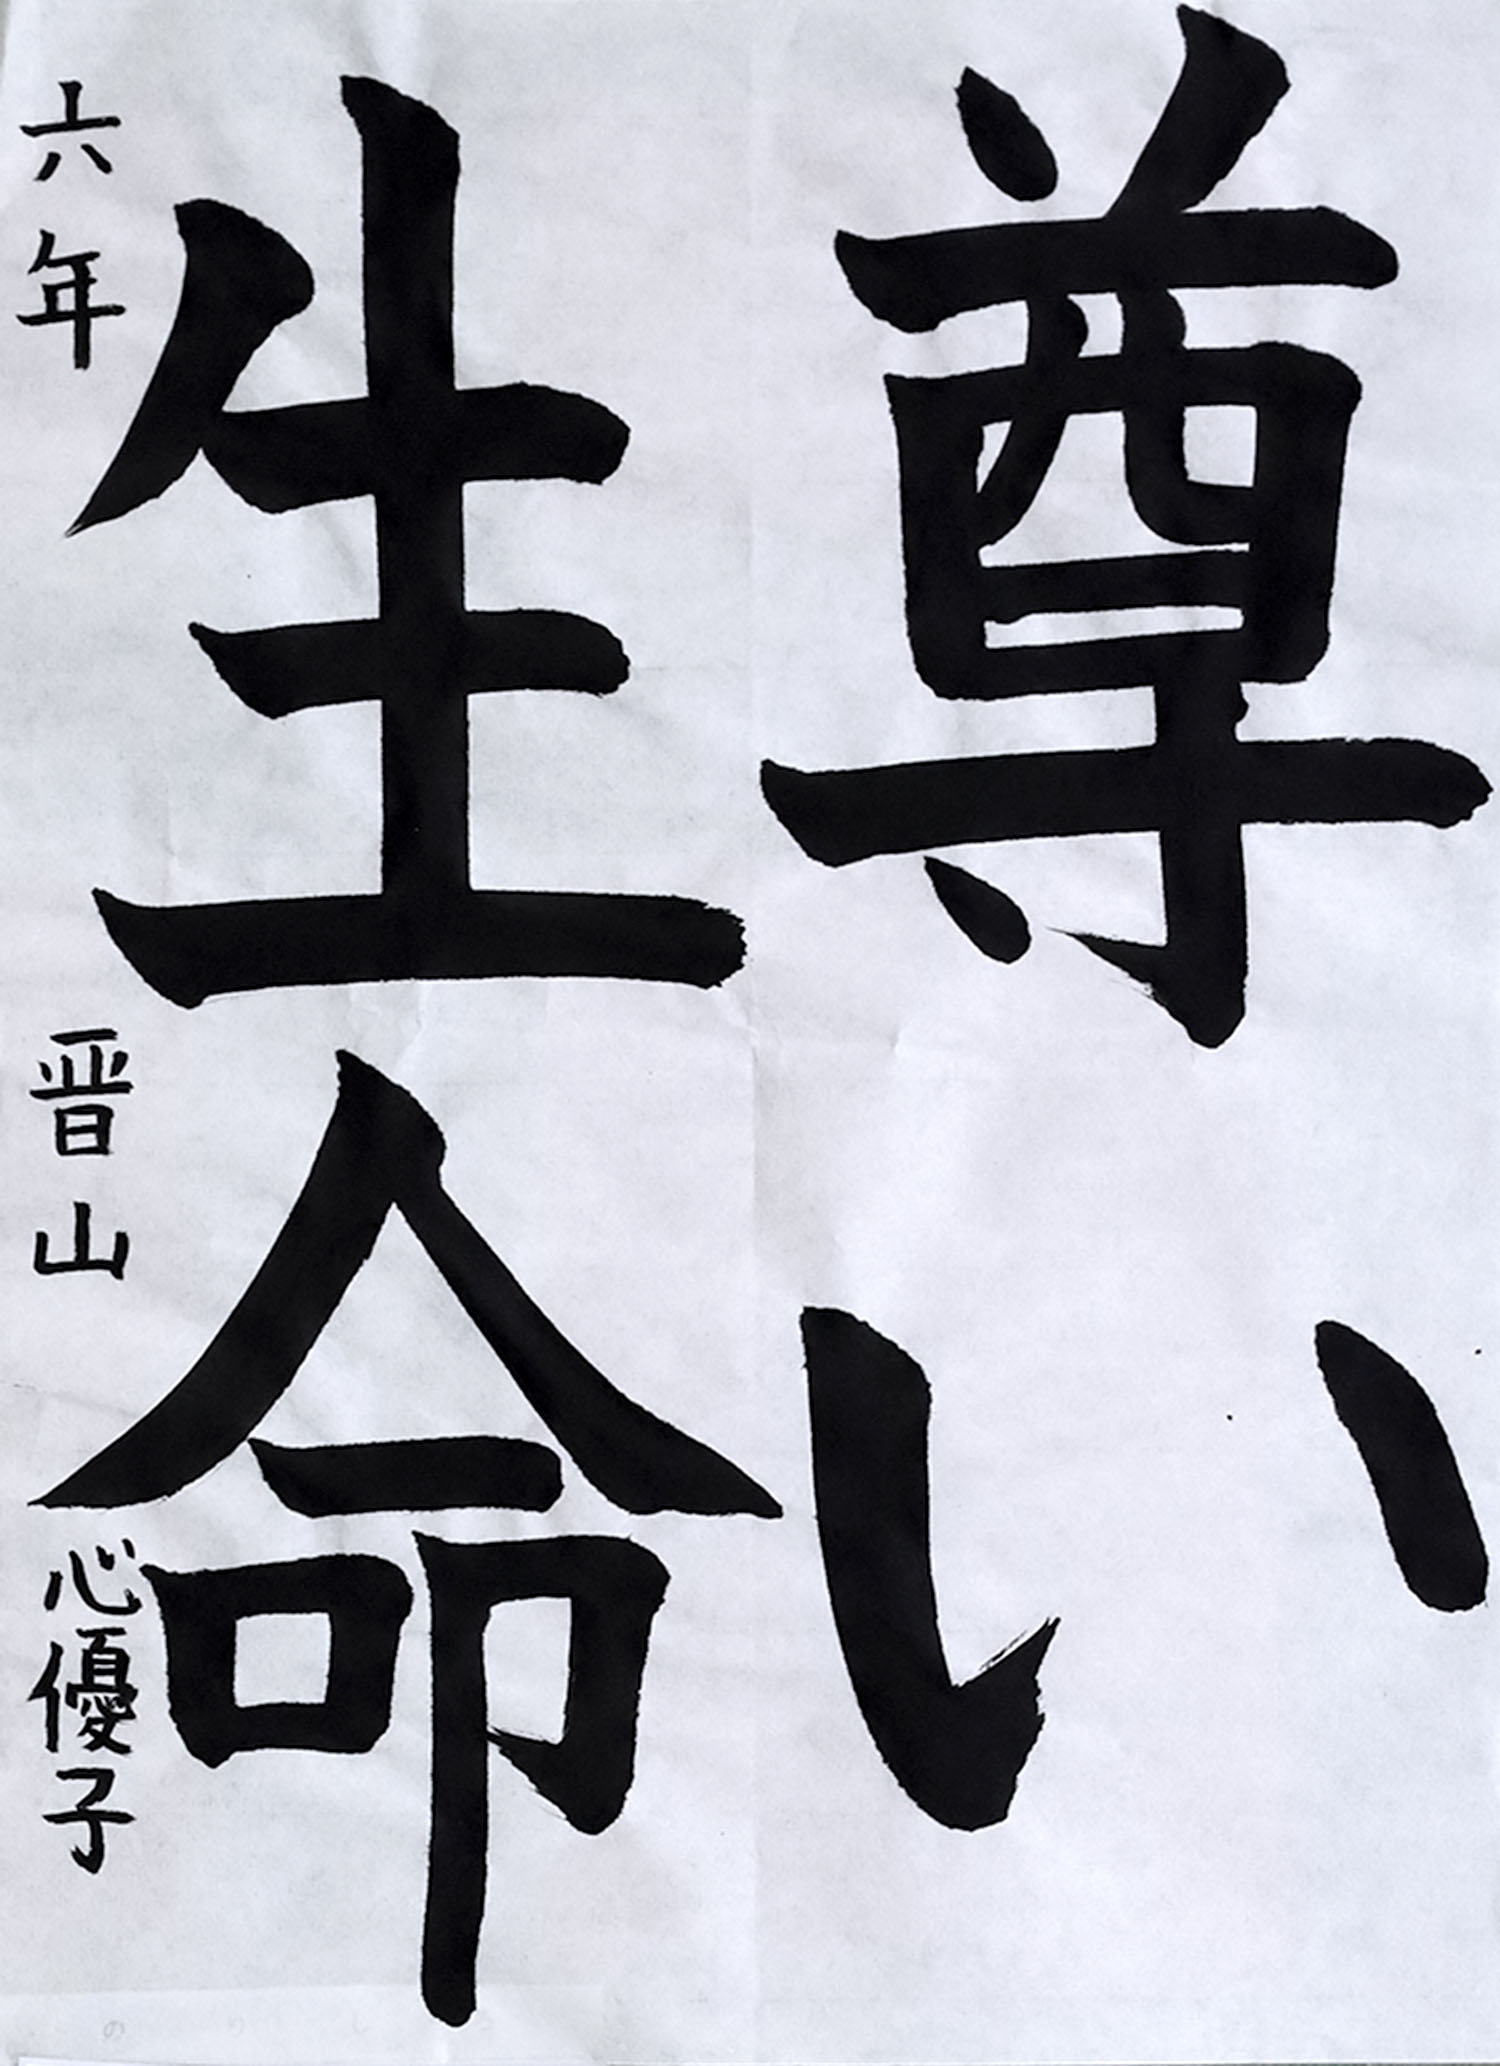 尊い
生命
六年 晋山 心優子